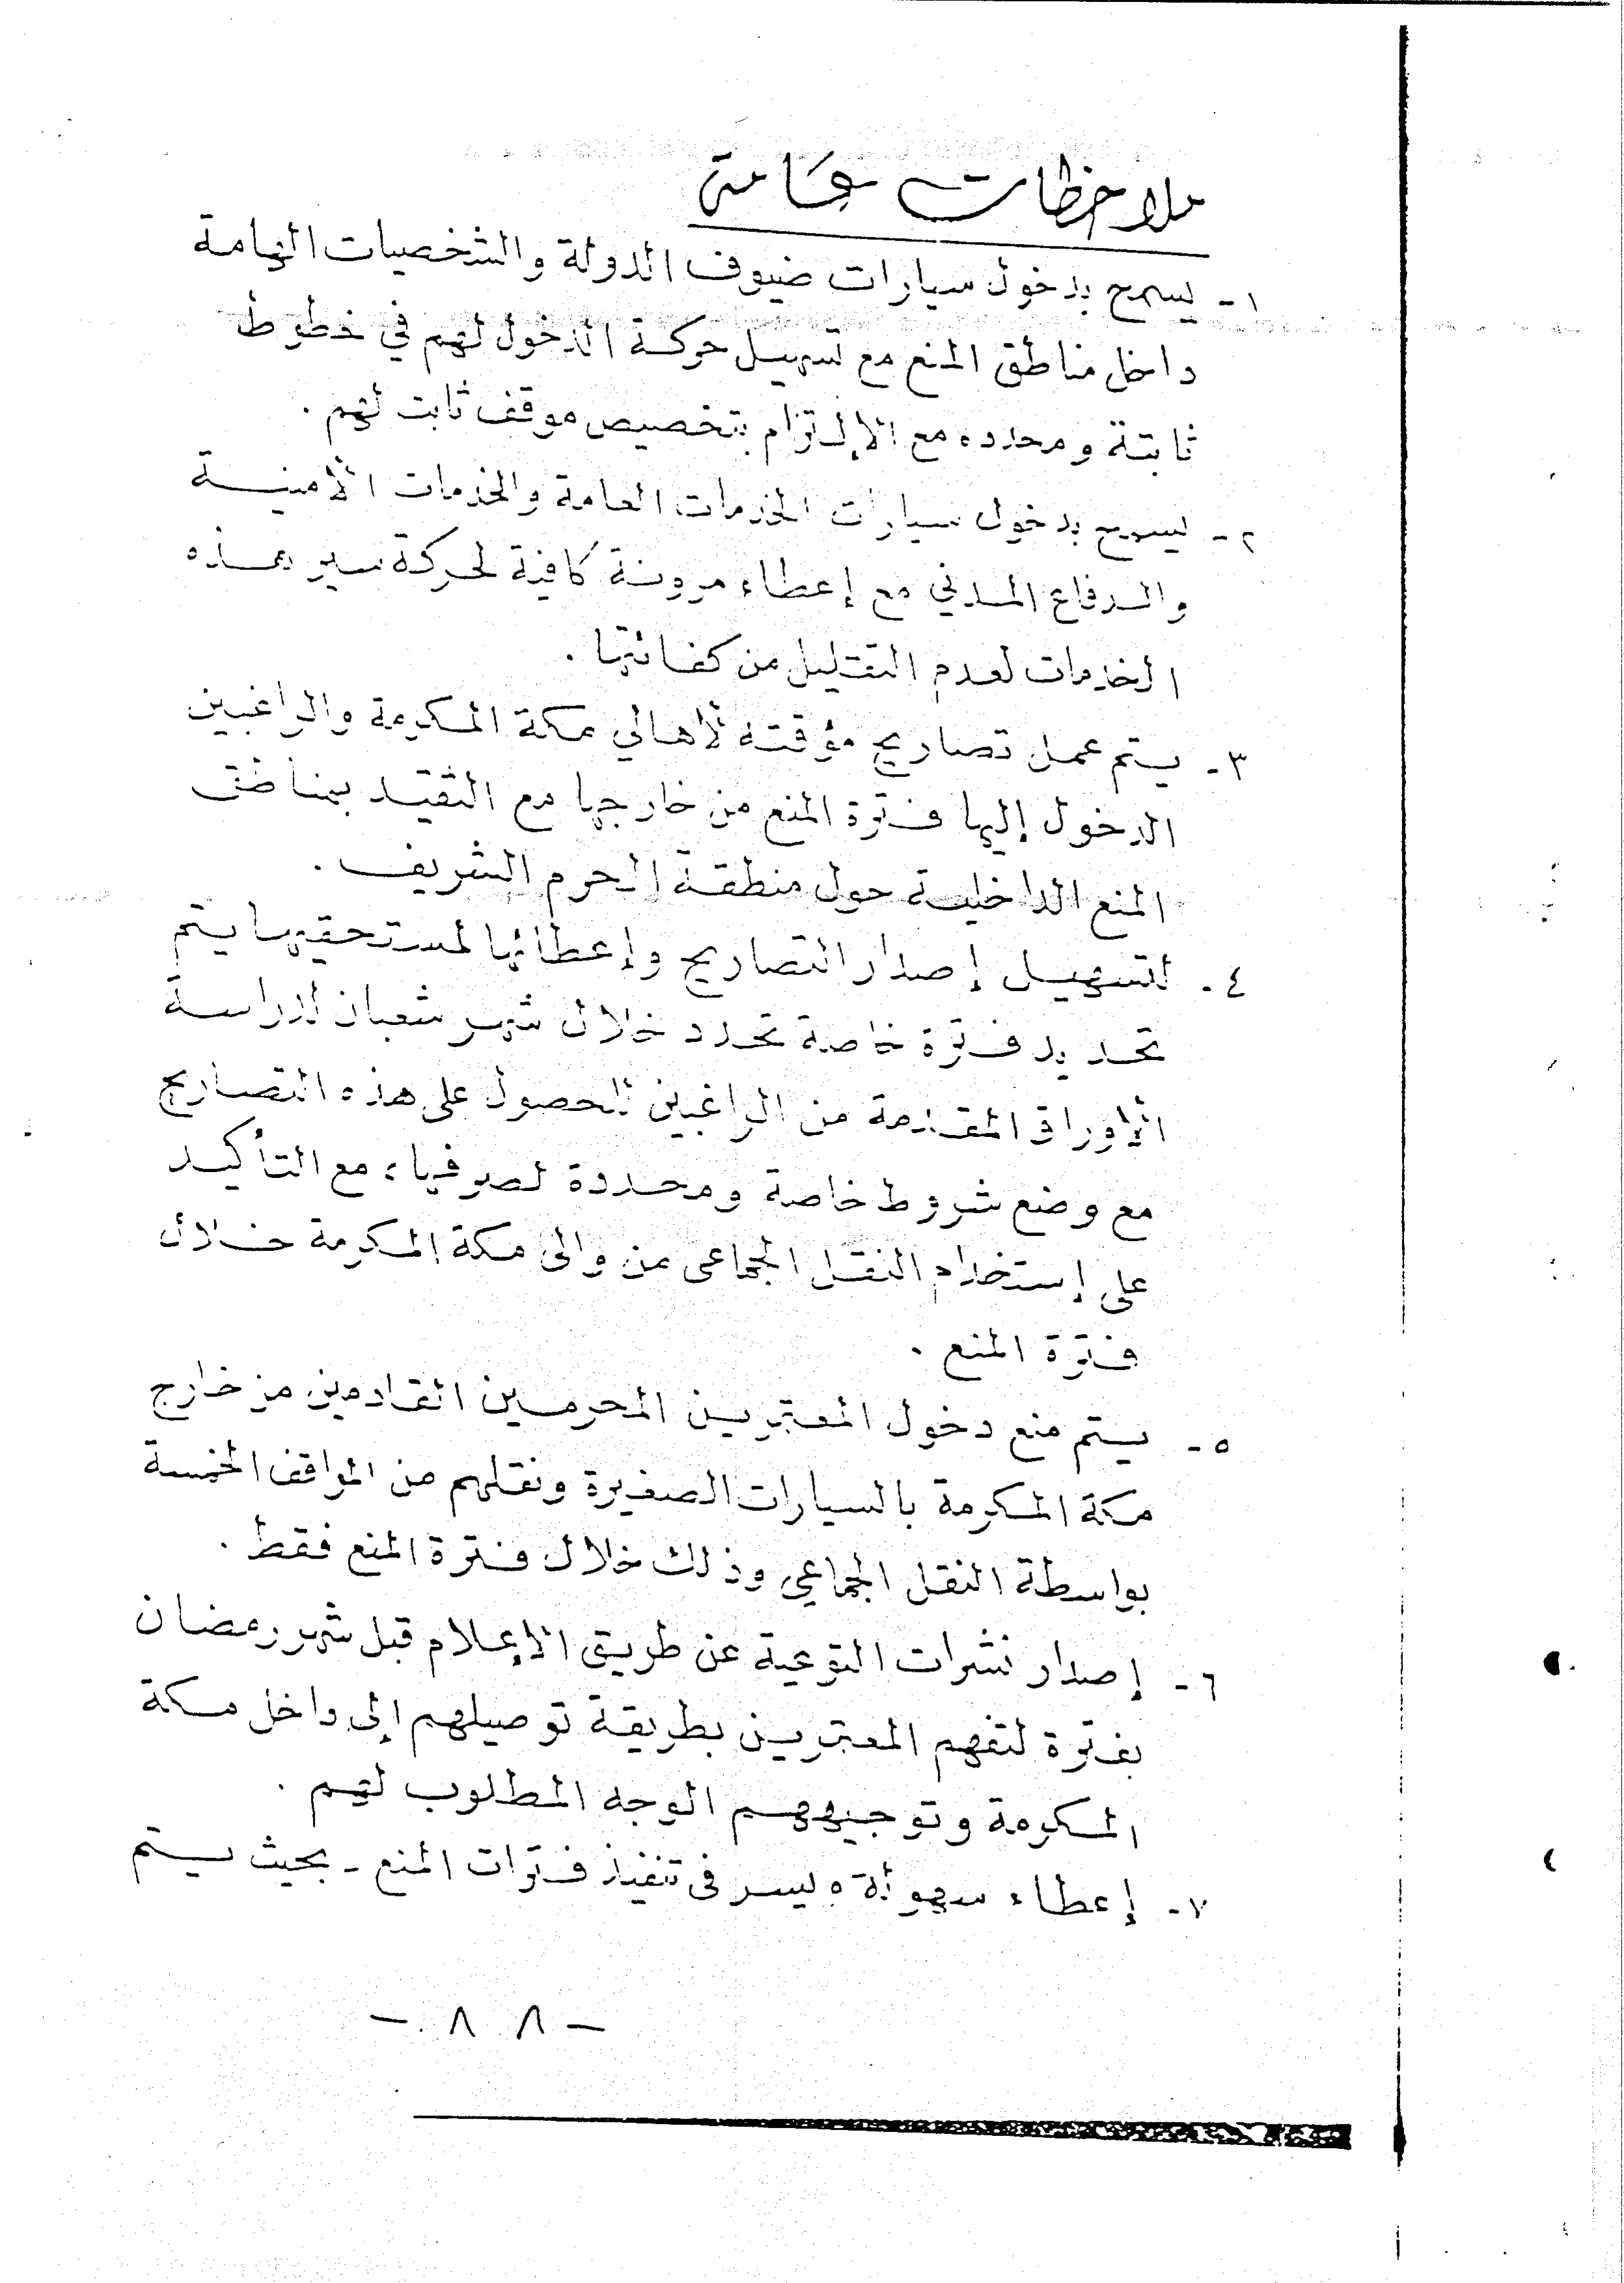 ملاحظات عامة
١- يسمح بدخول سيارات ضيوف الدولة والشخصيات الهامة
داخل مناطق المنع مع تسهيل حركة الدخول لهم في خطوط
ثابتة ومحدده مع الإلتزام بتخصيص موقف ثابت لهم .
٢- يسمح بدخول سيارات الخدمات العامة والخدمات الأمنية
والدفاع المدني مع إعطاء مرونة كافية لحركة سير هذه
الخدمات لعدم التقليل من كفائتها .
٣- يتم عمل تصاريح مؤقتة لأهالي مكة المكرمة والراغبين
الدخول إليها فترة المنع من خارجها مع التقيد بمناطق
المنع الداخلية حول منطقة الحرم الشريف .
٤- لتسهيل إصدار التصاريح وإعطائها لمستحقيها يتم
تحديد فترة خاصة تحدد خلال شهر شعبان لدراسة
الأوراق المقدمة من الراغبين للحصول على هذه التصاريح
مع وضع شروط خاصة ومحددة لصرفها، مع التأكيد
على إستخدام النقل الجماعي من والى مكة المكرمة خلال
فترة المنع .
٥- يتم منع دخول المعتمرين المحرمين القادمين من خارج
مكة المكرمة بالسيارات الصغيرة ونقلهم من المواقف الخمسة
بواسطة النقل الجماعي وذلك خلال فترة المنع فقط .
٦- إصدار نشرات التوعية عن طريق الإعلام قبل شهر رمضان
بفترة لتفهم المعتمرين بطريقة توصيلهم إلى داخل مكة
المكرمة وتوجيههم الوجه المطلوب لهم .
٧- إعطاء سهولة ويسر فى تنفيذ فترات المنع - بحيث يتم
- ٨٨ -